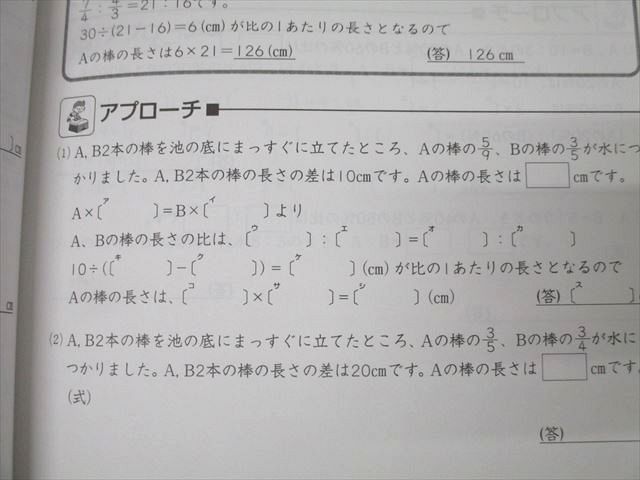 7/4 : 4/3 = 21 : 16です。
30÷(21－16)＝6(cm)が比の1あたりの長さとなるので
Aの長さは6×21＝126(cm)
(答) 126cm
アプローチ■
(1) A, B2本の棒を池の底にまっすぐに立てたところ、Aの棒の5/9、Bの棒の3/5が水につ
かりました。A, B2本の棒の長さの差は10cmです。Aの棒の長さは□cmです。
A×〔ア　　〕＝B×〔イ　　〕より
A、Bの棒の長さの比は、〔ウ　　〕：〔エ　　〕＝〔オ　　〕：〔カ　　〕
10÷(〔キ　　〕－〔ク　　〕)＝〔ケ　　〕(cm)が比の1あたりの長さとなるので
Aの棒の長さは、〔コ　　〕×〔サ　　〕＝〔シ　　〕(cm)
(答)〔ス　　〕c
(2) A, B2本の棒を池の底にまっすぐに立てたところ、Aの棒の3/5、Bの棒の3/4が水に
つかりました。A, B2本の棒の長さの差は20cmです。Aの棒の長さは□cmです。
(式)
(答)
〕cm
cm